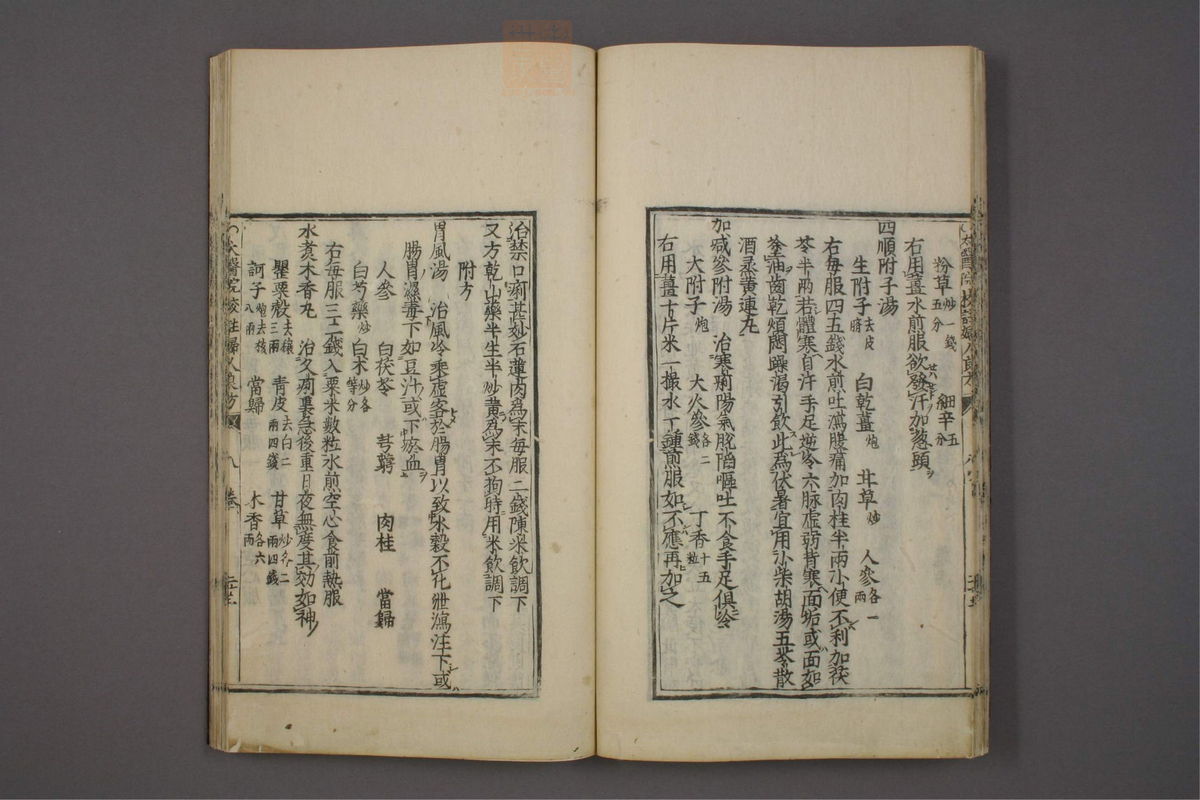 粉草炒一錢五分 細辛五分
右用薑水煎服欲發汗加葱頭
四順附子湯
生附子去皮臍 白乾薑炮 甘草炒 人參各一兩
右每服四五錢水煎吐瀉腹痛加肉桂半兩小便不利加茯
苓半兩若體寒自汗手足逆冷六脉虛弱背寒面垢或面如
塗油齒乾煩悶躁渴引飲此爲伏暑宜用小柴胡湯五苓散
酒蒸黄連丸
加减參附湯 治寒痢陽氣脫陷嘔吐不食手足俱冷
大附子炮 大人參各二錢 丁香十五粒
右用薑十片米一撮水一鍾煎服如不應再加之
治禁口痢甚妙石蓮肉爲末每服二錢陳米飲調下
又方乾山藥半生半炒黄爲末不拘時用米飲調下
附方
胃風湯 治風冷乘虛客於腸胃以致水穀不化泄瀉注下或
腸胃濕毒下如豆汁或下瘀血
人參 白茯苓 芎藭 肉桂 當歸
白芍藥炒 白术炒各等分
右每服三二錢入粟米數粒水煎空心食前熱服
水煮木香丸 治久痢裏急後重日夜無度其効如神
罌粟殼去穰三兩 青皮去白二兩四錢 甘草炒各二兩四錢
訶子炮去核八兩 當歸 木香各六兩
太醫院校註婦人良方 八卷